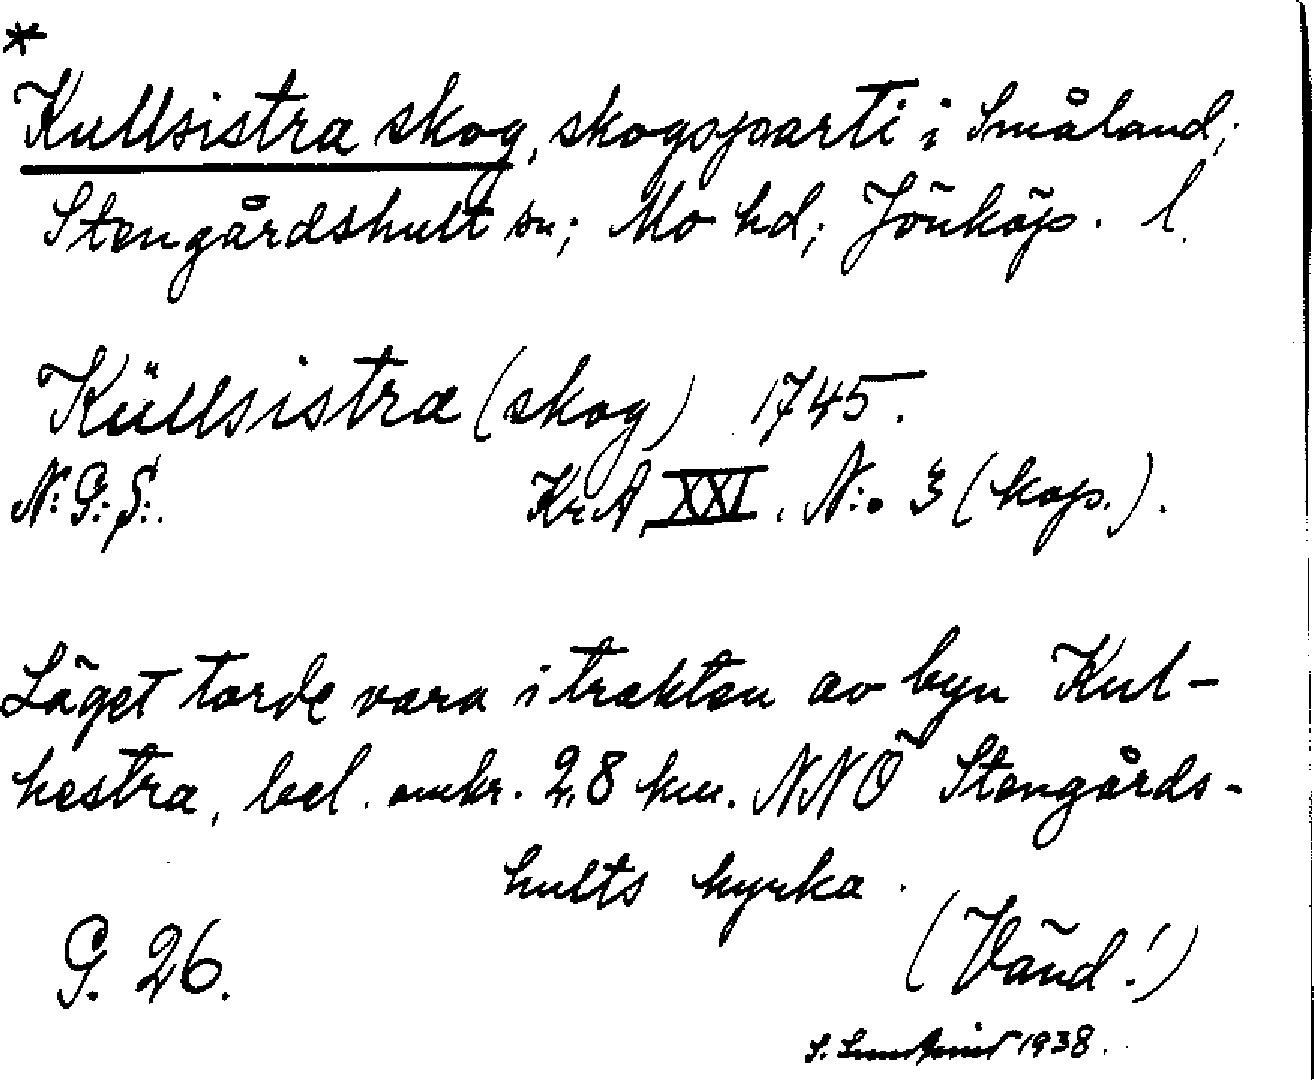 *
Kullsistra skog, skogsparti i Småland;
Stengårdshult sn; Mo hd; Jönköp. l.
Küllsistra (skog) 1745.
N: G: S:. Kr. A. XXI. N:o 3 (kop.).
Läget torde vara i trakten av byn Kul-
hestra, bel. omkr. 2,8 km. NNÖ Stengårds-
hults kyrka.
(Vänd!)
G. 26.
S. 1938.